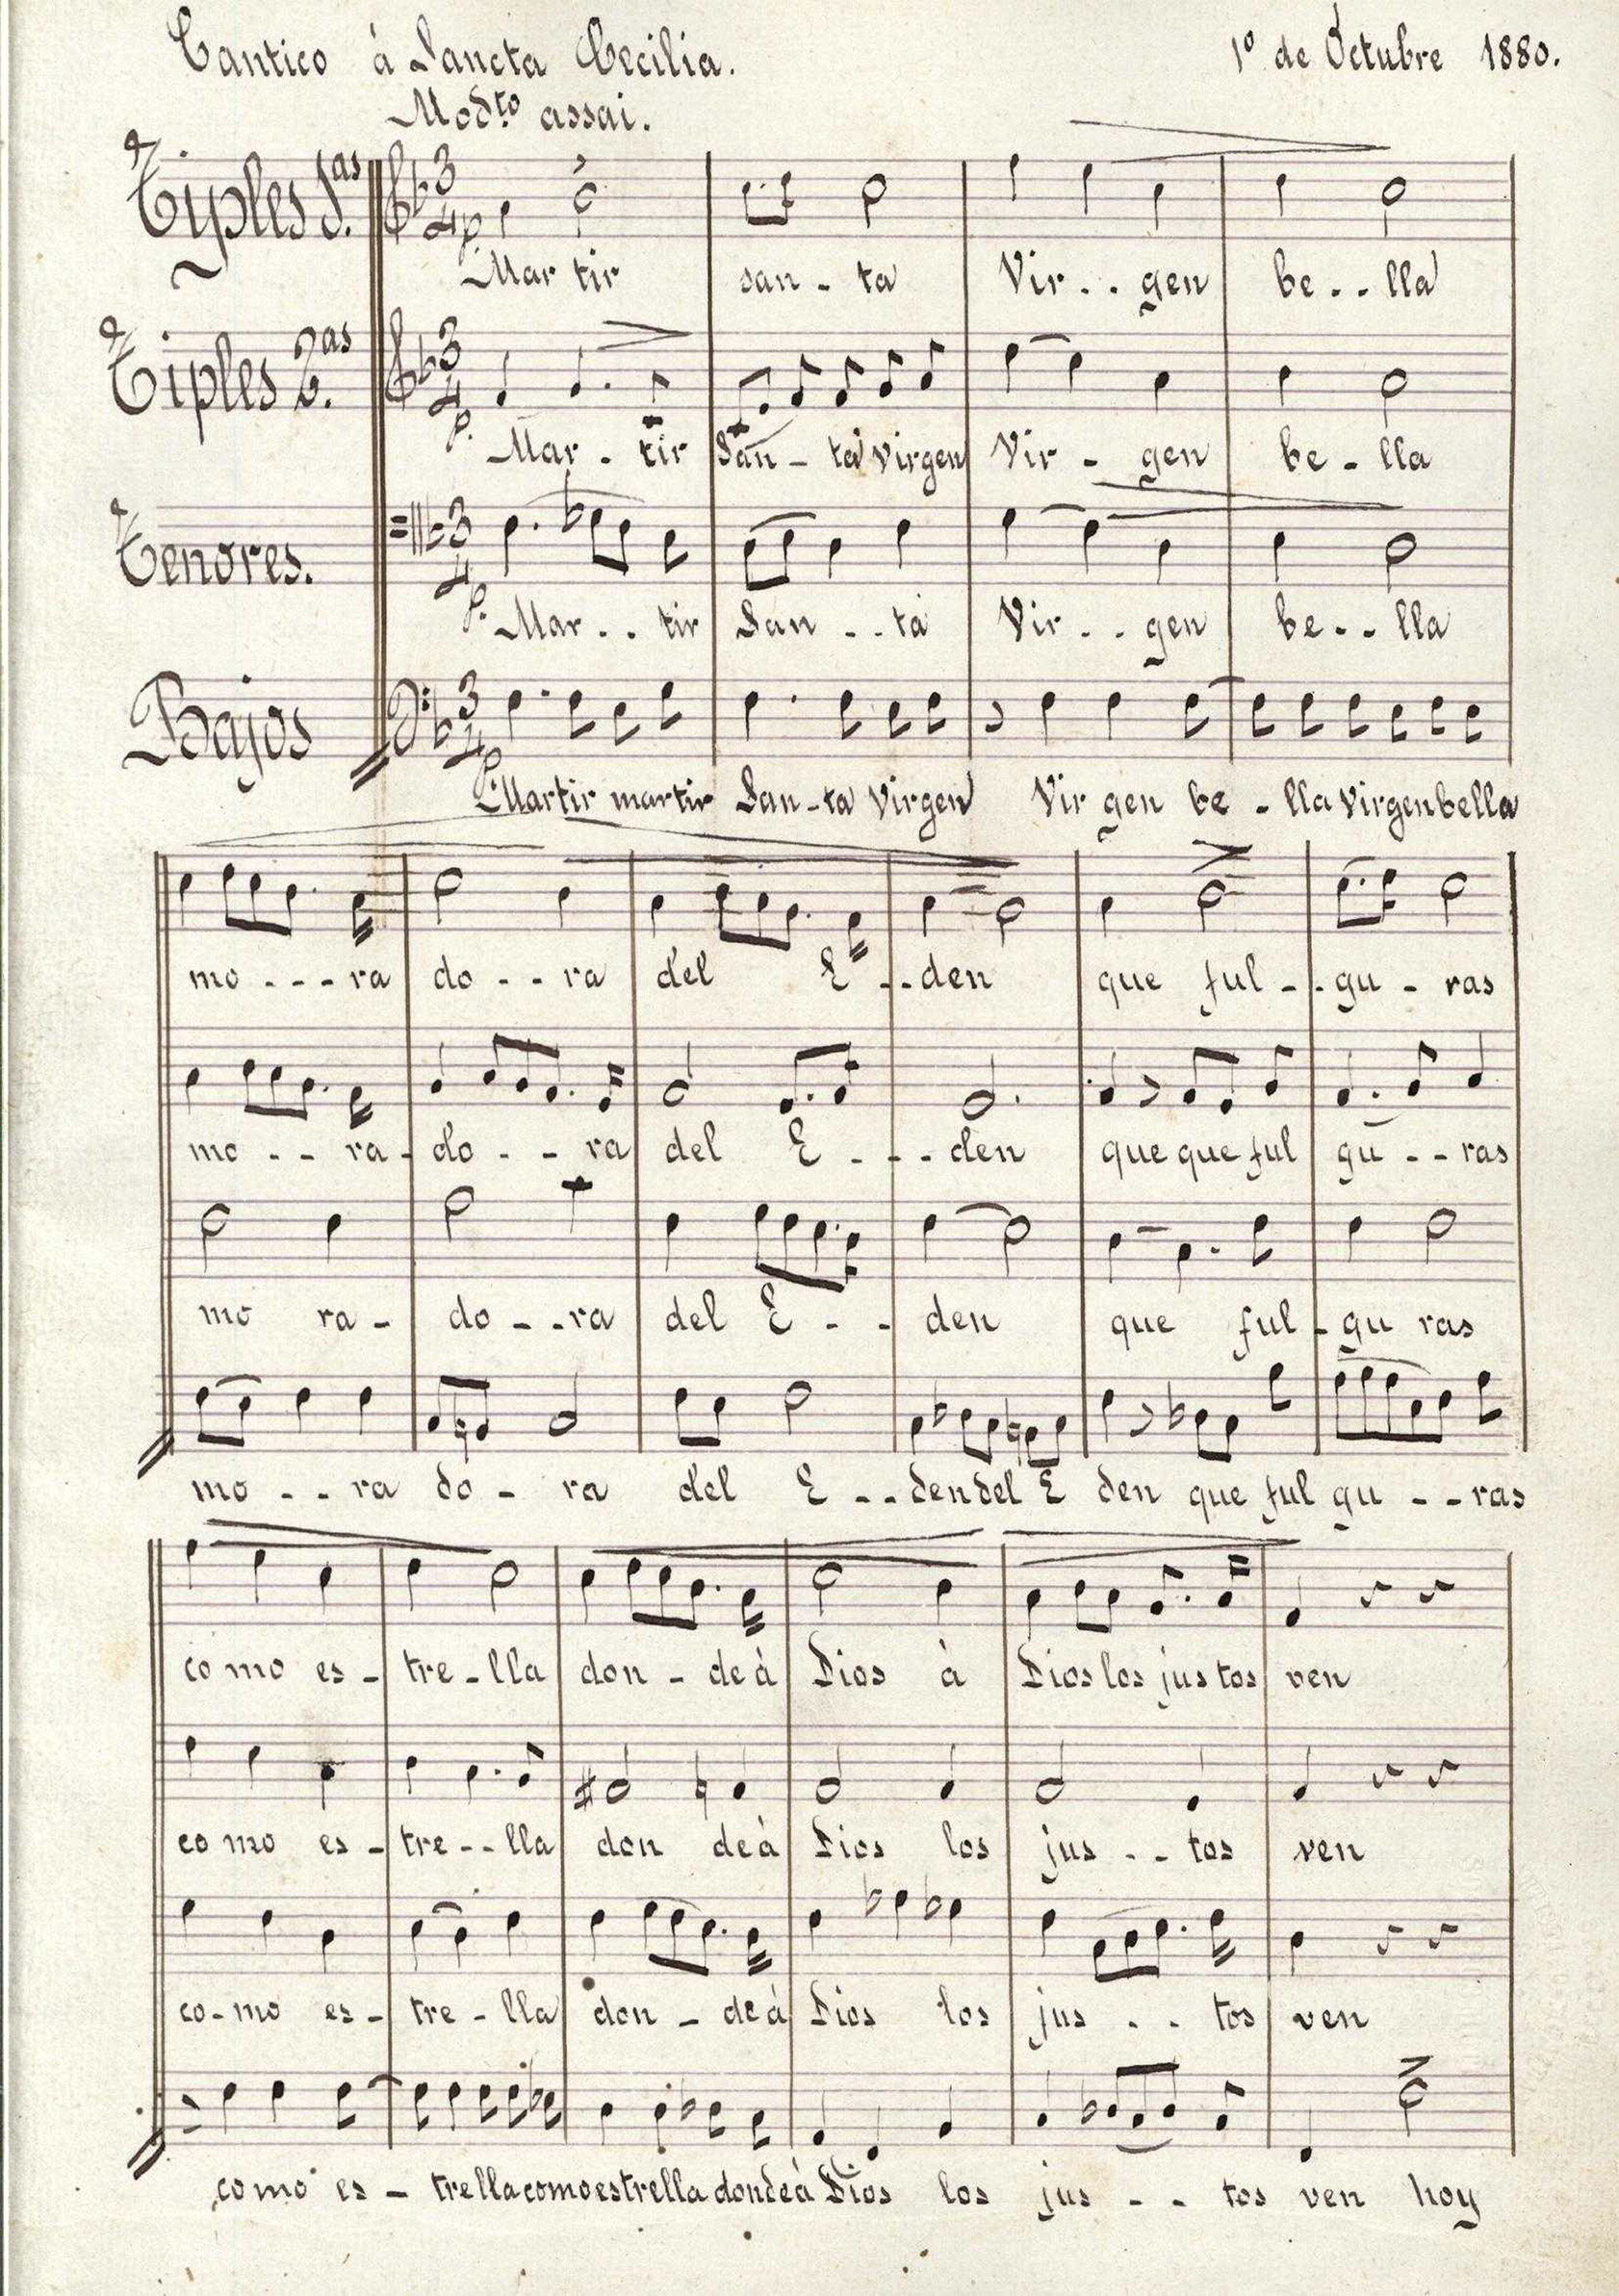 Cantico à Sancta Cecilia. 1º de Octubre 1880.
Modto assai.
Tiples 1.as
3 4 p.
Mar tir san - ta Vir - - gen be - - lla
Tiples 2.as
3 4 p.
Mar - tir San - ta Virgen Vir - gen be - lla
Tenores.
3 4 p.
Mar - - tir San - - ta Vir - - gen be - - lla
Bajos
3 4 p.
Martir martir San - ta Virgen Vir gen be - lla Virgen bella
mo - - - ra do - - ra del E - - den que ful - - gu - ras
mo - - ra - do - - ra del E - - - den que que ful gu - - ras
mo ra - do - - ra del E - - den que ful - gu ras
mo - - ra do - ra del E - - den del E den que ful gu - - ras
co mo es - tre - lla don - de à Dios à Dios los jus tos ven
co mo es - tre - - lla don de à Dios los jus - - tos ven
co - mo es - tre - lla don - de à Dios los jus - - tos ven
co mo es - trella como estrella donde à Dios los jus - - tos ven hoy